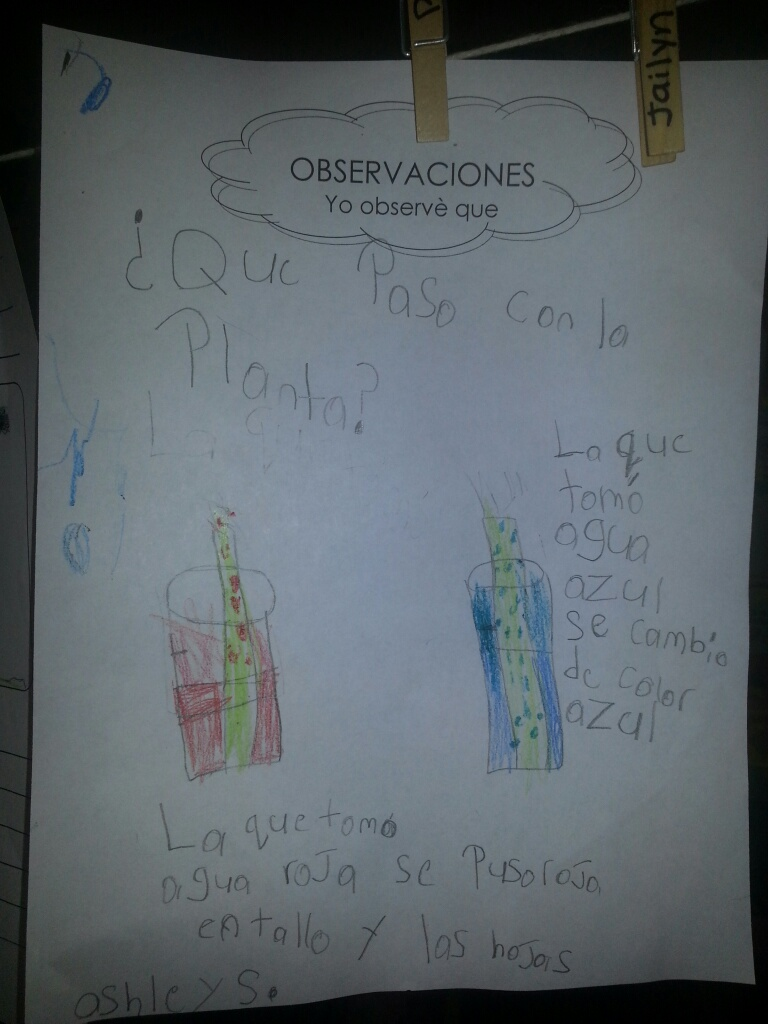 Jailyn
OBSERVACIONES
Yo observè que
¿Que Paso con la
Planta?
La que
tomó
agua
azul
se cambio
de color
azul
La que tomó
agua roja se Puso roja
en tallo y las hojas
ashley S.